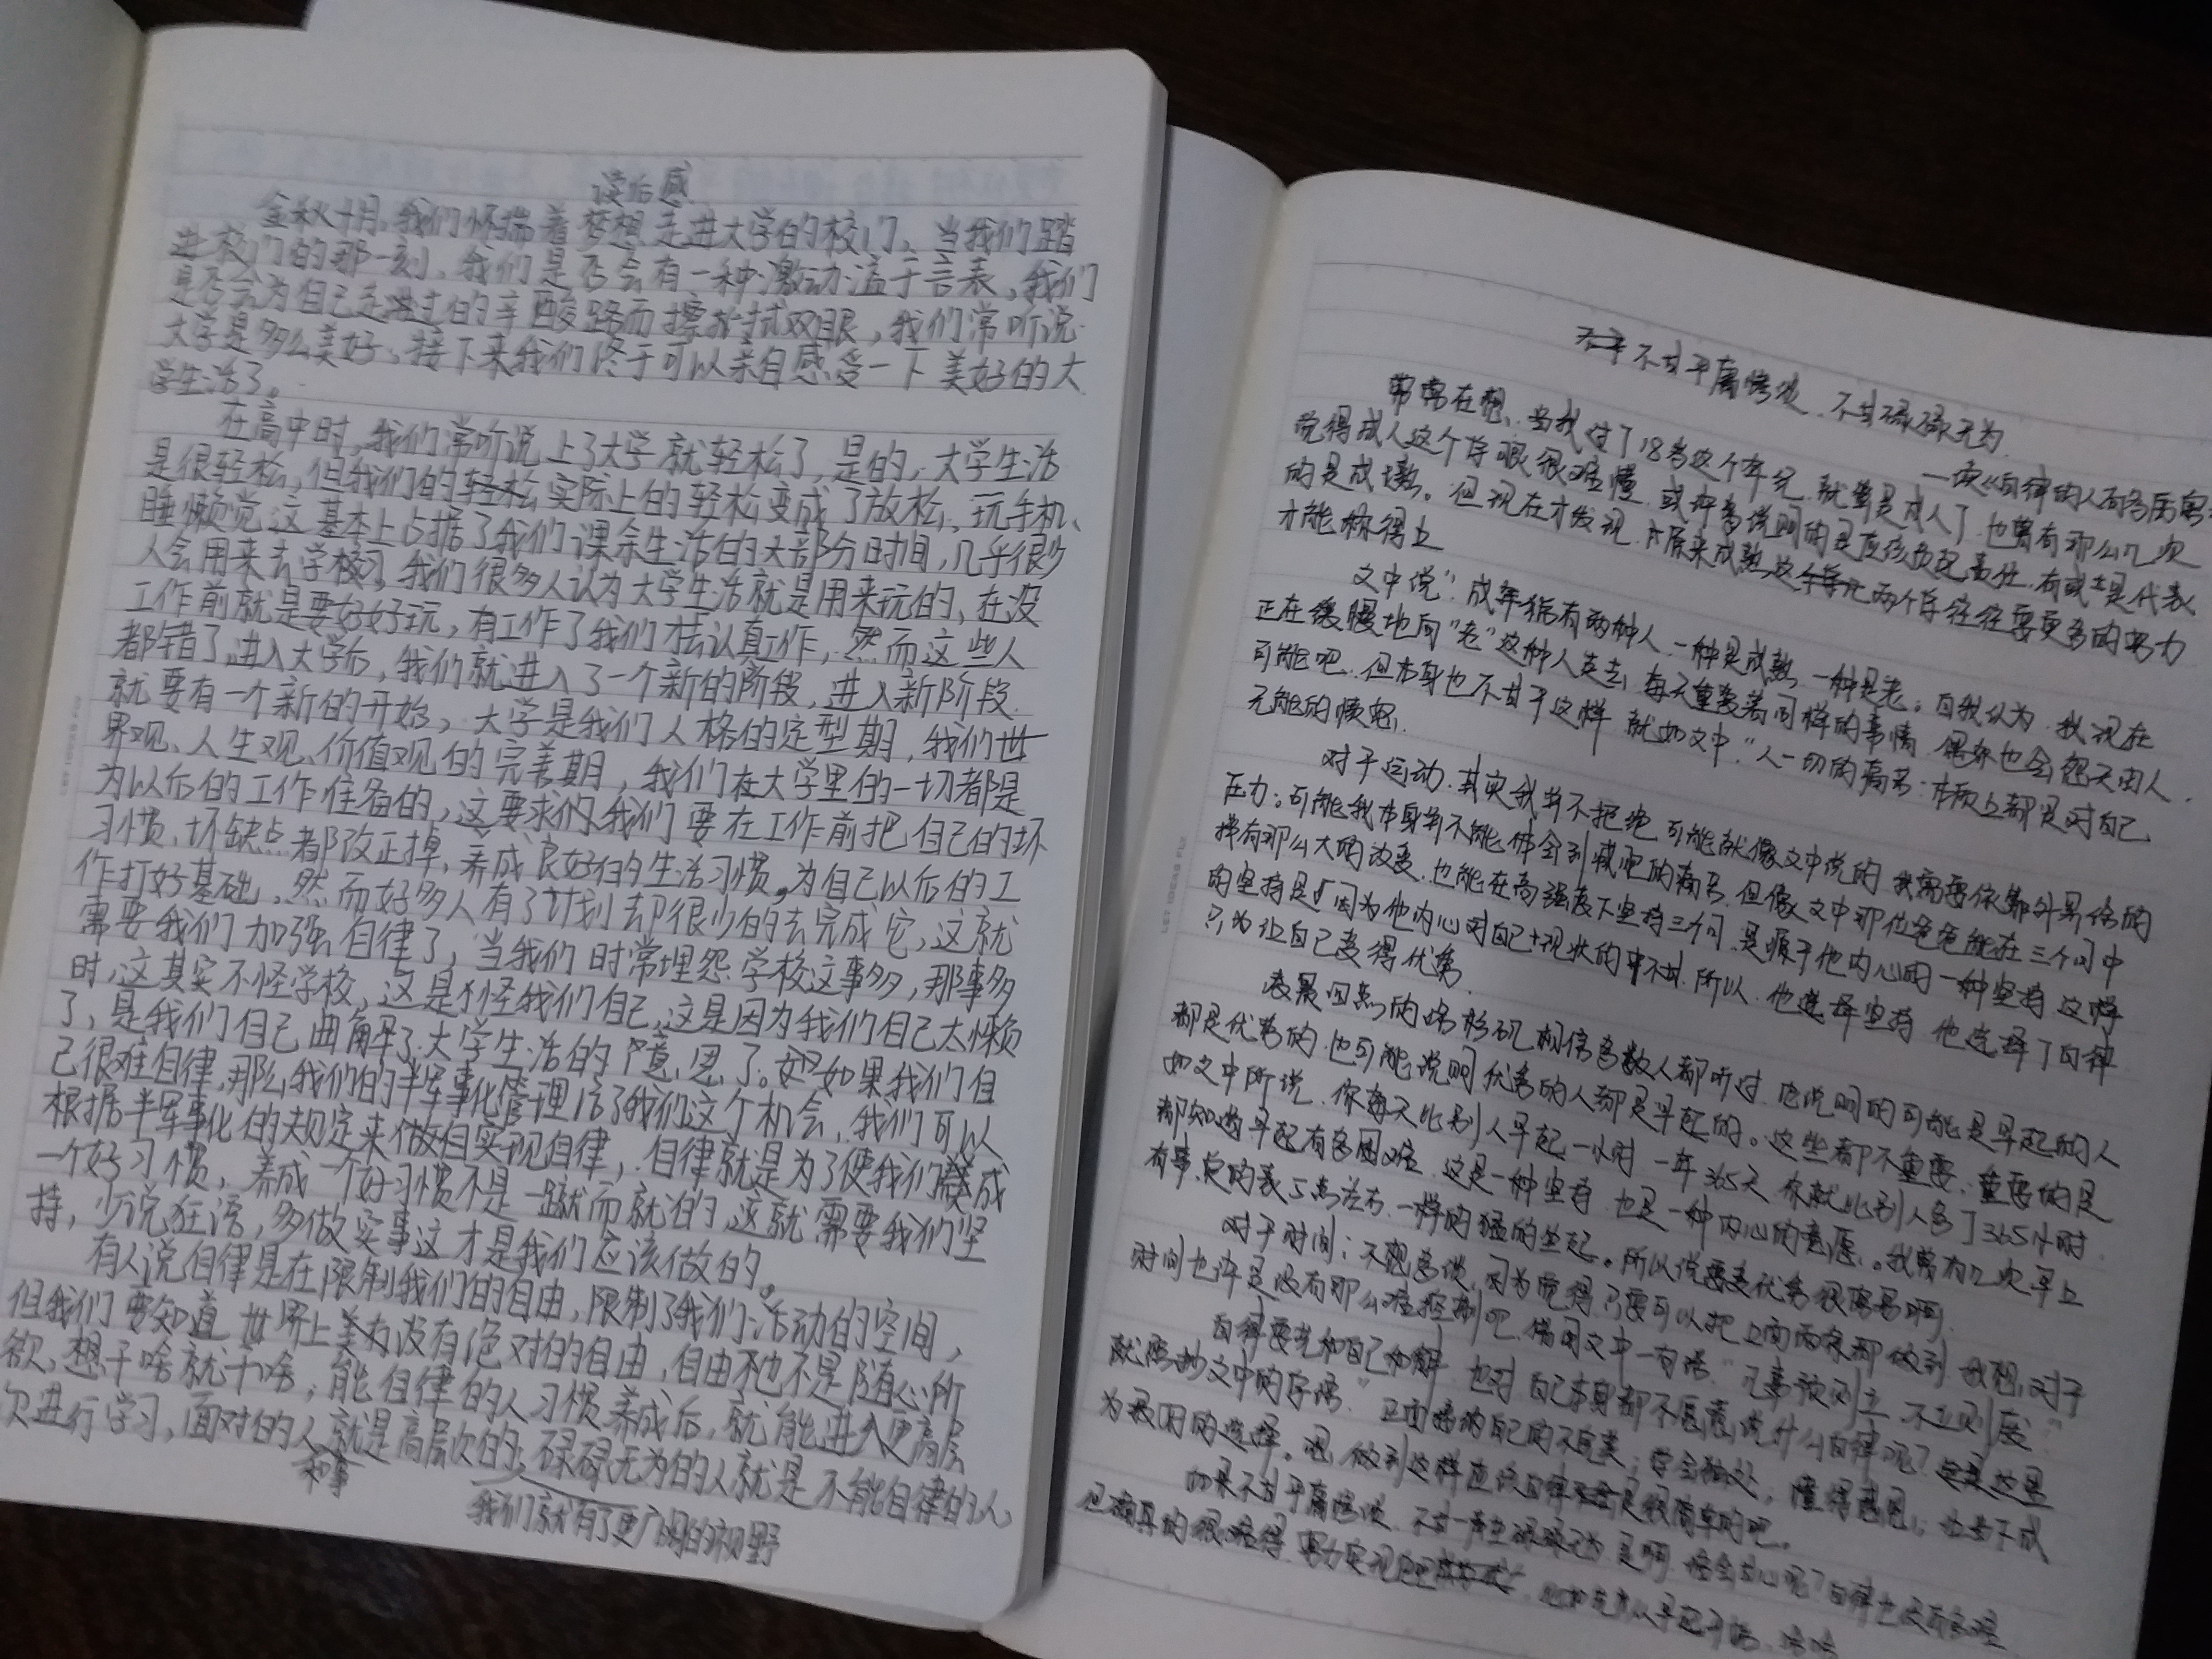 读后感
金秋十月，我们怀揣着梦想走进大学的校门、当我们踏
进校门的那一刻、我们是否会有一种激动溢于言表，我们
是否会为自己走过的辛酸路而擦拭双眼，我们常听说
大学是多么美好、接下来我们终于可以亲自感受一下美好的大
学生活了。
在高中时，我们常听说上了大学就轻松了，是的，大学生活
是很轻松，但我们的轻松实际上的轻松变成了放松、玩手机、
睡懒觉这基本上占据了我们课余生活的大部分时间，几乎很少
人会用来去学校习，我们很多人认为大学生活就是用来玩的、在没
工作前就是要好好玩，有工作了我们去认真工作，然而这些人
都错了，进入大学后，我们就进入了一个新的阶段，进入新阶段
就要有一个新的开始，大学是我们人格的定型期，我们世
界观、人生观、价值观的完善期，我们在大学里的一切都是
为以后的工作准备的，这要求我们要在工作前把自己的坏
习惯、坏缺点都改正掉、养成良好的生活习惯，为自己以后的工
作打好基础，然而好多人有了计划却很少的去完成它，这就
需要我们加强自律了，当我们时常埋怨学校这事多，那事多
时，这其实不怪学校，这是怪我们自己，这是因为我们自己太懒
了，是我们自己曲解了大学生活的意思了。如果我们自
己很难自律，那么我们的半军事化管理给了我们这个机会，我们可以
根据半军事化的规定来做自实现自律，自律就是为了使我们养成
一个好习惯，养成一个好习惯不是一蹴而就的，这就需要我们坚
持，少说狂语，多做实事这才是我们应该做的。
有人说自律是在限制我们的自由，限制了我们活动的空间，
但我们要知道世界上没有绝对的自由，自由也不是随心所
欲、想干啥就干啥，能自律的人习惯养成后，就能进入更高层
次进行学习，面对的人就是高层次的，碌碌无为的人就是不能自律的人
和事
我们就有了更广阔的视野
不甘平庸 不甘碌碌无为
一读《自律的人
常常在想、当我过了18岁这个年纪，就算是成人了，也曾有那么几次
觉得成人这个字眼很难懂，或许者说明的是应该负起责任，有或是代表
的是成熟。但现在才发现，原来成熟这两个字往往要更多的努力
才能称得上
文中说"成年人有两种人，一种是成熟，一种是老。自我认为，我现在
正在缓慢地向"老"这种人走去，每天重复着同样的事情，偶尔也会怨天尤人，
可能吧，但本身也不甘于这样，就如文中"人一切的痛苦：本质上都是对自己
无能的愤怒。
对于运动，其实我并不拒绝，可能就像文中说的，我需要依靠外界给的
压力。可能我本身并不能体会到减肥的痛苦，但像文中那位爸爸能在三个月中
拥有那么大的改变，也能在高强度下坚持三个月，是源于他内心的一种坚持，这样
的坚持是因为他内心对自己现状的不甘，所以，他选择坚持，他选择了自律
只为让自己变得优秀。
凌晨四点的洛杉矶，相信多数人都听过，它说明的可能是早起的人
都是优秀的，也可能说明优秀的人都是早起的。这些都不重要，重要的是
如文中所说，你每天比别人早起一小时，一年365天，你就比别人多了365小时，
都知道早起有多困难，这是一种坚持，也是一种内心的意愿。我曾有几次早上
有事，定的表5点左右，一样的猛的坐起。所以说要变优秀很容易啊。
对于时间：不想多谈，因为觉得只要可以把上面两条都做到，我想，对于
时间也许是没有那么难控制吧，借用文中一句话"凡事预则立，不立则废"
自律要先和自己和解，也对，自己本身都不愿意，说什么自律呢？
就照抄文中的字语"正面接纳自己的不完美，学会独处，懂得感恩，
为最明的选择。嗯，做到这样应该自律是很简单的吧。
如果不甘平庸 不甘一声至碌碌无为，是啊，谁会甘心呢？自律
但确真的很难得，努力实现吧